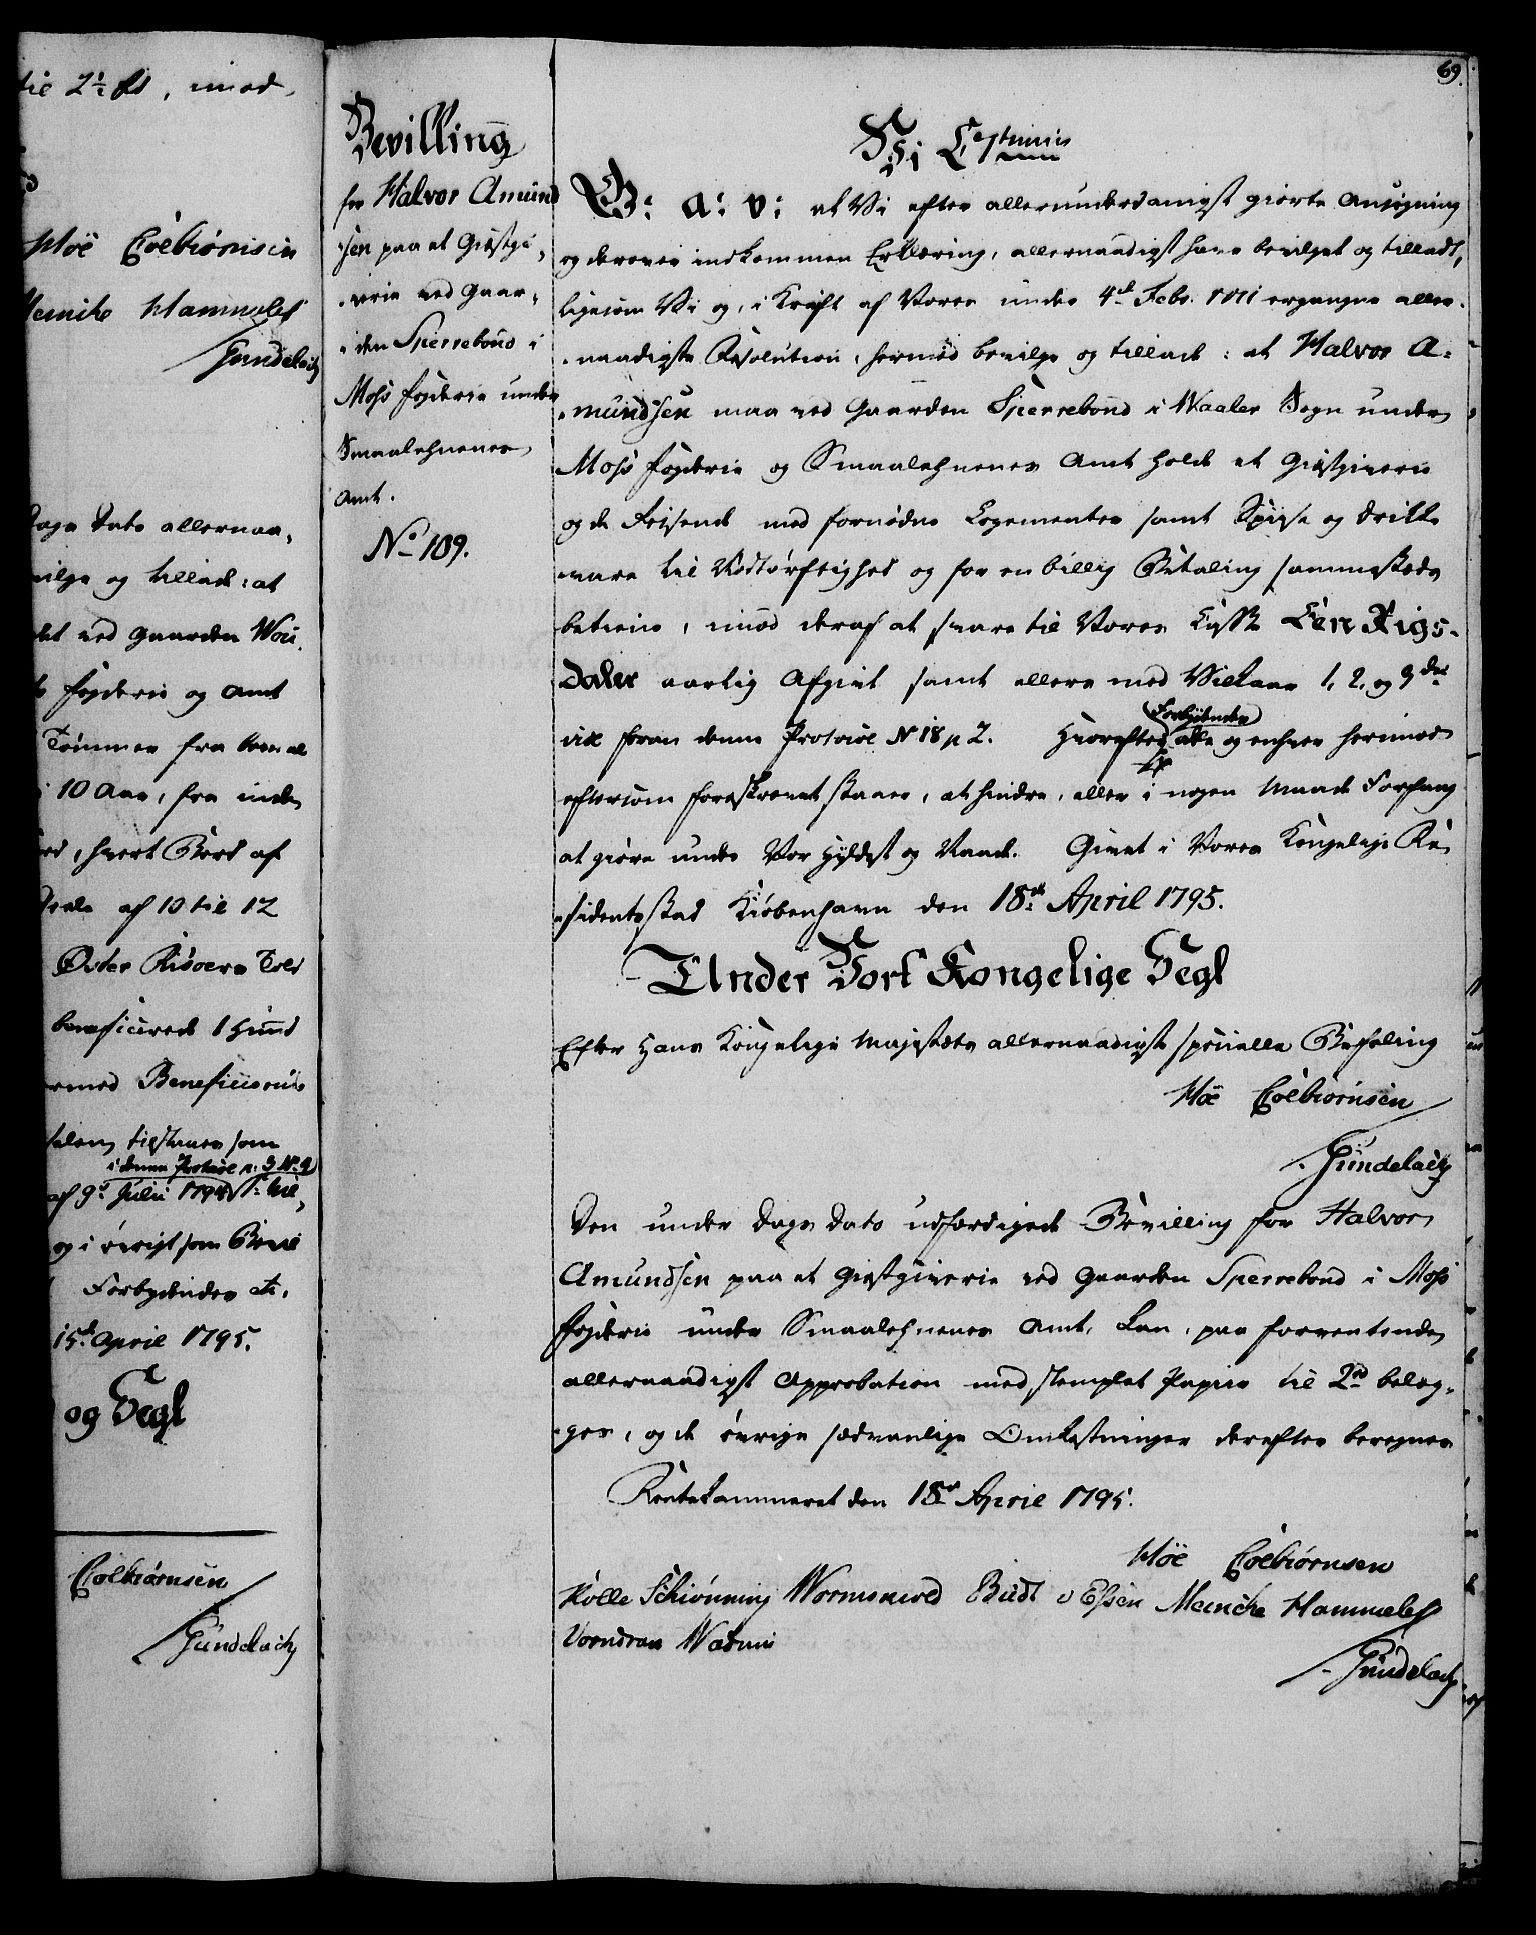 til 2½ rd, imod
Høe Colbiørnsen
Meincke Hammeleff
Gundelach
Dags Dato allernaa-
vilge og tillade: at
det ved Gaarden
Fogderie og Amt
Tømmer fra
i 10 Aar, fra inden
hvert Bord af
af 10 til 12
Øster Riisøers Told
beneficerede 1 Hund
Beneficerende
tilstaaes som
i denne Protocol p. 3 No 9
af 9de Julii 1794
og i øvrigt som Bevil
Forbydendes etc.
15de April 1795.
og Segl
Colbiørnsen
Gundelach
Bevilling
for Halvor Amund
sen paa et Giestgi-
verie ved Gaar-
den Sperrebond i
Moss Fogderie under
Smaalehnenes
Amt.
No 109.
69.
Vi C 7timus
G: A: V: at Vi efter allerunderdanigst giorte Ansøgning
og derover indkommen Erklæring, allernaadigst have bevilget og tilladt,
ligesom Vi og, i Kraft af Vores under 4de Febr. 1771 ergangne aller-
naadigste Resolution, hermed bevilge og tillade: at Halvor A-
mundsen maa ved Gaarden Sperrebond i Waaler Sogn under
Moss Fogderie og Smaalehnenes Amt holde et Giestgiverie
og de Reisende med fornødne Logementer samt Spise og Drikke
vare til Nødtørftighed og for en billig Betaling sammestæds
betiene, imod deraf at svare til Vores Casse Een Rigs-
daler aarlig Afgivt samt ellers med Vilkaar 1, 2, og 3die
vide foran denne Protocol N 18 p 2. Hvorefter alle og enhver herimod
Forbydendes
eftersom foreskrevet staaer, at hindre, eller i nogen Maade Forfang
at giøre under Vor Hyldest og Naade. Givet i Vores Kongelige Re-
sidentsstad Kiøbenhavn den 18de April 1795.
Under Vort Kongelige Segl
Efter Hans Kongelige Majestæts allernaadigste specielle Befaling
Høe Colbiørnsen
Gundelach
Den under Dags Dato udfærdigede Bevilling for Halvor
Amundsen paa et Giestgiverie ved Gaarden Sperrebond i Moss
Fogderie under Smaalehnenes Amt, kan, paa forventende
allernaadigst Approbation med stemplet Papiir til 2 rd belæg-
ges, og de øvrige sædvanlige Omkostninger derefter beregnes
Rentekammeret den 18de April 1795.
Høe Colbiørnsen
Kølle Schiønning Wormskiold Budt v Essen Meincke Hammeleff
Vorndran Wadum
Gundelach